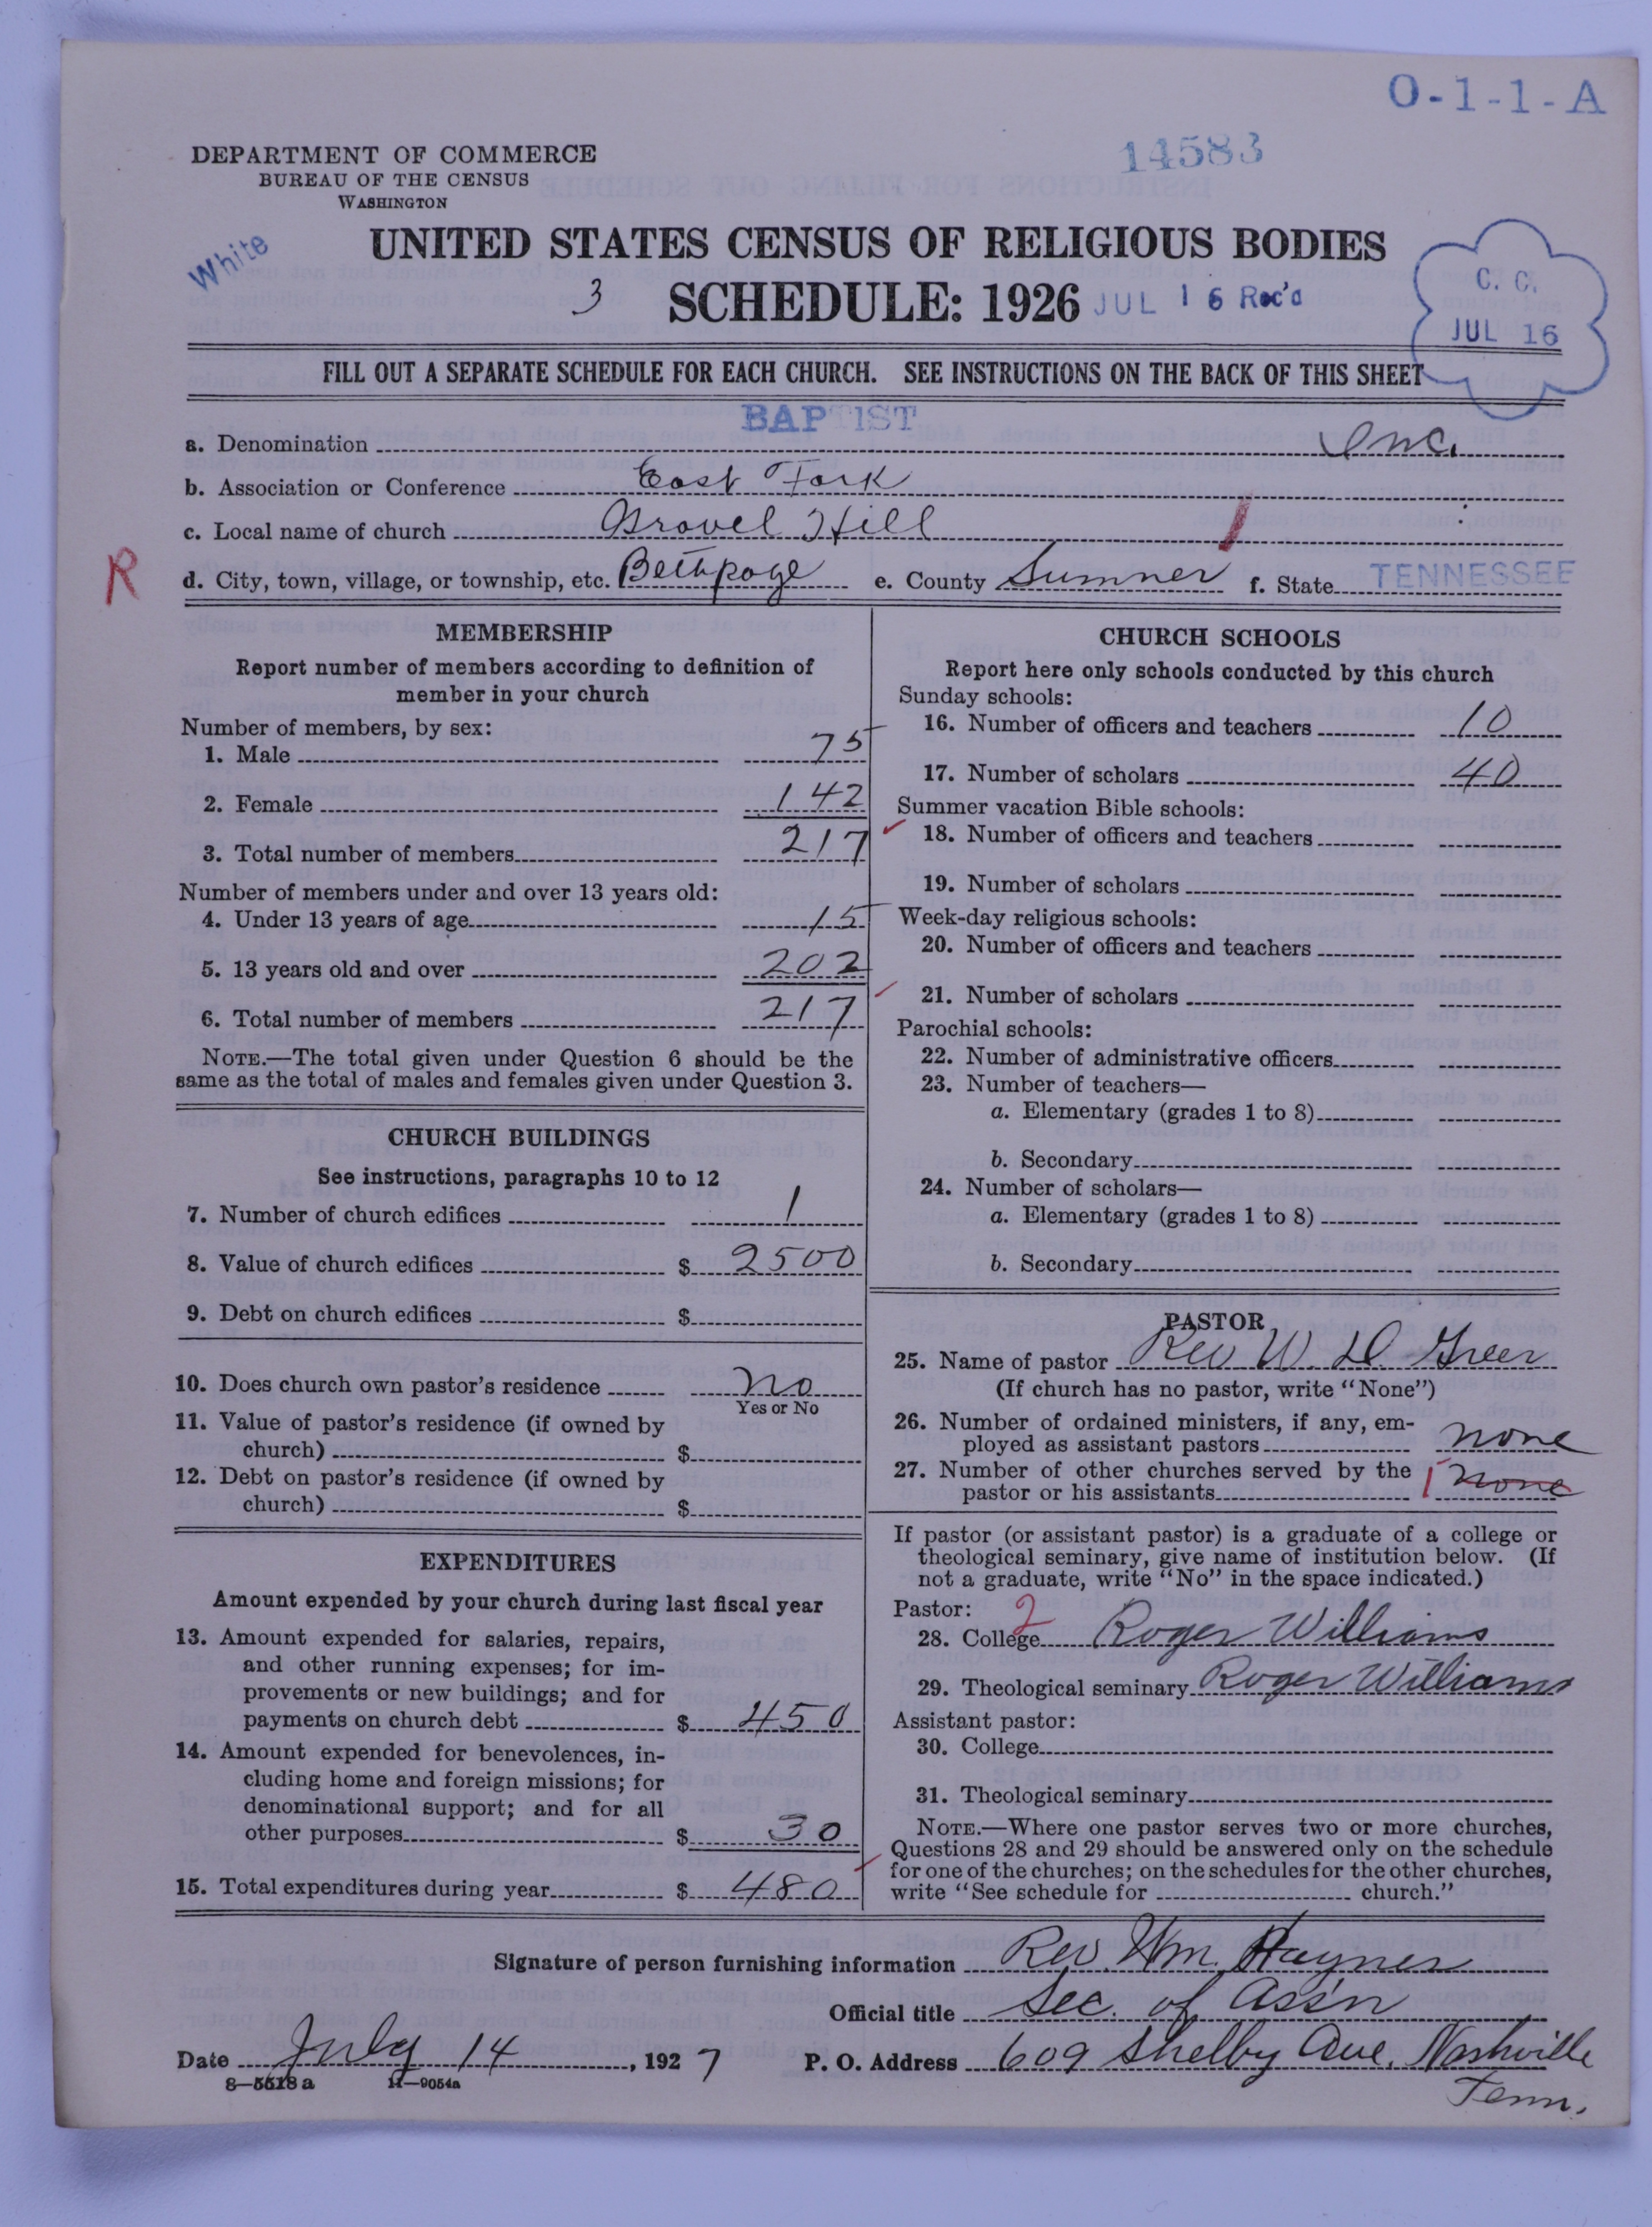 O-1-1-A
14583
DEPARTMENT OF COMMERCE
BUREAU OF THE CENSUS
WASHINGTON
White
UNITED STATES CENSUS OF RELIGIOUS BODIES
3 SCHEDULE: 1926 JUL 16 Rec'd
C. C.
JUL 16
FILL OUT A SEPARATE SCHEDULE FOR EACH CHURCH. SEE INSTRUCTIONS ON THE BACK OF THIS SHEET
BAPTIST
a. Denomination Inc.
b. Association or Conference East Fork
c. Local name of church Gravel Hill
R
d. City, town, village, or township, etc. Bethpage e. County Sumner f. State TENNESSEE
MEMBERSHIP
Report number of members according to definition of
member in your church
Number of members, by sex:
1. Male 75
2. Female 142
3. Total number of members 217
Number of members under and over 13 years old:
4. Under 13 years of age 15
5. 13 years old and over 202
6. Total number of members 217
NOTE.—The total given under Question 6 should be the
same as the total of males and females given under Question 3.
CHURCH BUILDINGS
See instructions, paragraphs 10 to 12
7. Number of church edifices 1
8. Value of church edifices $ 2500
9. Debt on church edifices $
10. Does church own pastor's residence no
Yes or No
11. Value of pastor's residence (if owned by
church) $
12. Debt on pastor's residence (if owned by
church) $
EXPENDITURES
Amount expended by your church during last fiscal year
13. Amount expended for salaries, repairs,
and other running expenses; for im-
provements or new buildings; and for
payments on church debt $ 450
14. Amount expended for benevolences, in-
cluding home and foreign missions; for
denominational support; and for all
other purposes $ 30
15. Total expenditures during year $ 480
CHURCH SCHOOLS
Report here only schools conducted by this church
Sunday schools:
16. Number of officers and teachers 10
17. Number of scholars 40
Summer vacation Bible schools:
18. Number of officers and teachers
19. Number of scholars
Week-day religious schools:
20. Number of officers and teachers
21. Number of scholars
Parochial schools:
22. Number of administrative officers
23. Number of teachers—
a. Elementary (grades 1 to 8)
b. Secondary
24. Number of scholars—
a. Elementary (grades 1 to 8)
b. Secondary
PASTOR
25. Name of pastor Rev W. D. Greer
(If church has no pastor, write "None")
26. Number of ordained ministers, if any, em-
ployed as assistant pastors none
27. Number of other churches served by the
pastor or his assistants 1 none
If pastor (or assistant pastor) is a graduate of a college or
theological seminary, give name of institution below. (If
not a graduate, write "No" in the space indicated.)
Pastor: 2
28. College Roger Williams
29. Theological seminary Roger Williams
Assistant pastor:
30. College
31. Theological seminary
NOTE.—Where one pastor serves two or more churches,
Questions 28 and 29 should be answered only on the schedule
for one of the churches; on the schedules for the other churches,
write "See schedule for church."
Signature of person furnishing information Rev. Wm. Haynes
Official title Sec. of Ass'n
Date July 14, 1927 P. O. Address 609 Shelby Ave. Nashville
Tenn.
8—5518a 11—9054a